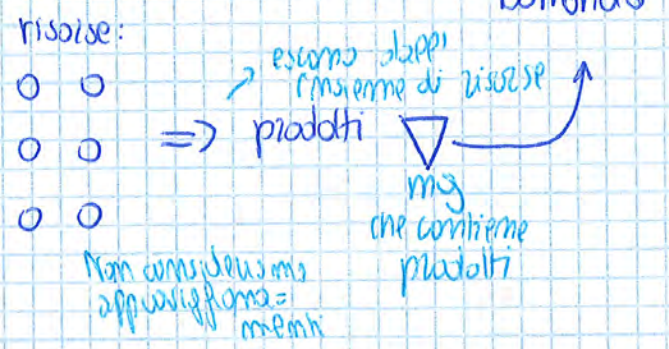 risorse:
escono dall'
insieme di risorse
=> prodotti
mg
che contiene
prodotti
Non consideriamo
approvvigiona=
menti